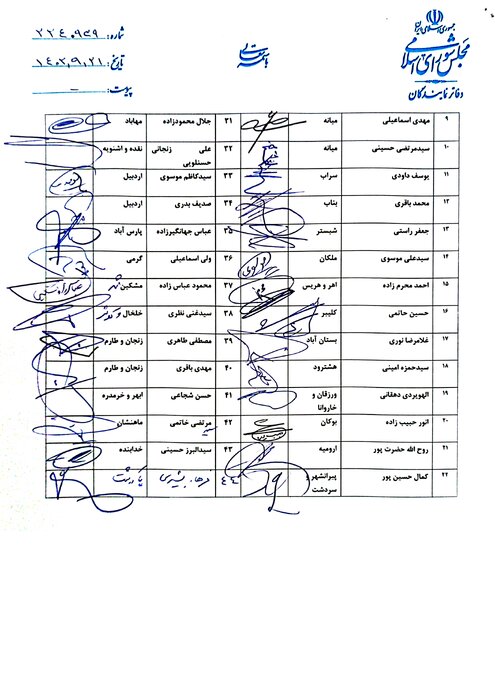 جمهوری اسلامی ایران
مجلس شورای اسلامی
دفاتر نمایندگان
بسمه تعالی
شماره: ۲۲۴۰۹۴۹
تاریخ: ۱۴۰۳,۹,۲۱
پیوست: –
۹ مهدی اسماعیلی میانه ۳۱ جلال محمودزاده مهاباد
۱۰ سیدمرتضی حسینی میانه ۳۲ علی زنجانی حسنلویی نقده و اشنویه
۱۱ یوسف داودی سراب ۳۳ سیدکاظم موسوی اردبیل
۱۲ محمد باقری بناب ۳۴ صدیف بدری اردبیل
۱۳ جعفر راستی شبستر ۳۵ عباس جهانگیرزاده پارس آباد
۱۴ سیدعلی موسوی ملکان ۳۶ ولی اسماعیلی گرمی
۱۵ احمد محرم زاده اهر و هریس ۳۷ محمود عباس زاده مشکین شهر
۱۶ حسین حاتمی کلیبر ۳۸ سیدغنی نظری خلخال و کوثر
۱۷ غلامرضا نوری بستان آباد ۳۹ مصطفی طاهری زنجان و طارم
۱۸ سیدحمزه امینی هشترود ۴۰ مهدی باقری زنجان و طارم
۱۹ الهویردی دهقانی ورزقان و خاروانا ۴۱ حسن شجاعی ابهر و خرمدره
۲۰ انور حبیب زاده بوکان ۴۲ مرتضی خاتمی ماهنشان
۲۱ روح الله حضرت پور ارومیه ۴۳ سیدالبرز حسینی خدابنده
۲۲ کمال حسین پور پیرانشهر و سردشت ۴۴ فرهاد بشیری پاکدشت